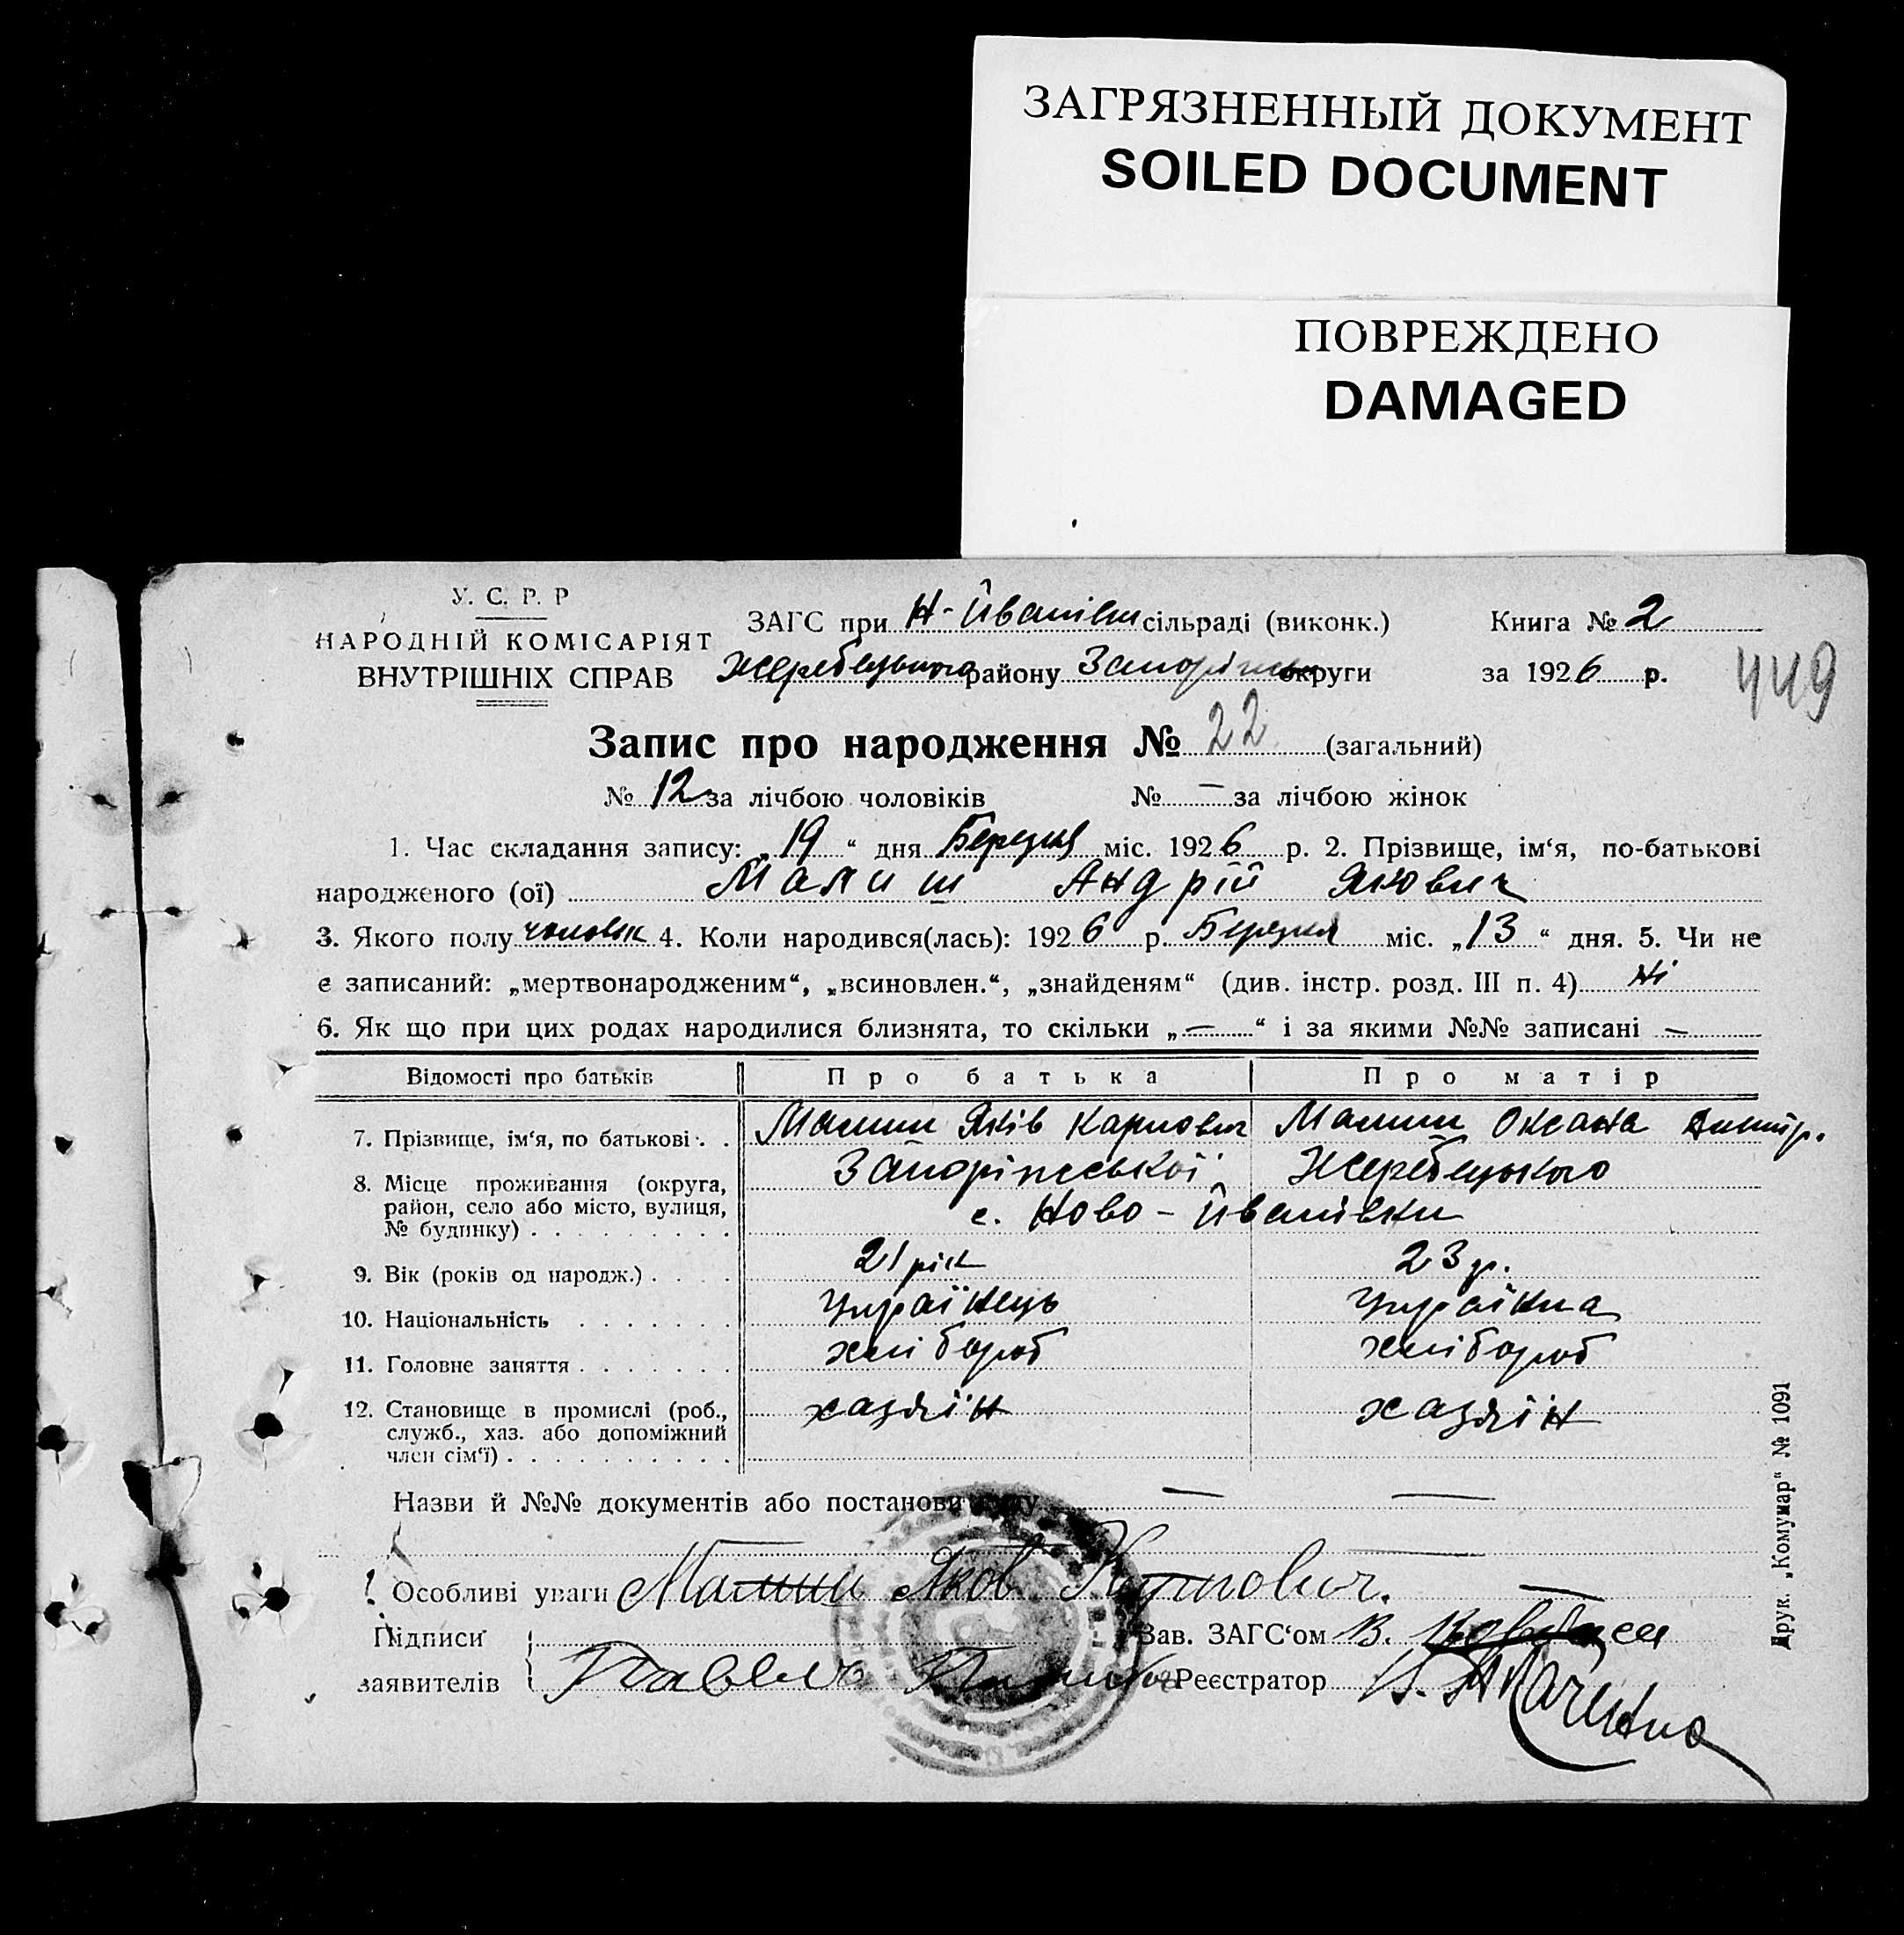 ЗАГРЯЗНЕННЫЙ ДОКУМЕНТ
SOILED DOCUMENT
ПОВРЕЖДЕНО
DAMAGED
У. С. Р. Р
НАРОДНІЙ КОМІСАРІЯТ
ВНУТРІШНІХ СПРАВ
ЗАГС при Н-Йванівки сільраді (виконк.)
Жеребецького району Запоріжськ округи
Книга № 2
за 1926 р.
449
Запис про народження № 22 (загальний)
№ 12 за лічбою чоловіків № — за лічбою жінок
1. Час складання запису: „19“ дня Березня міс. 1926 р. 2. Прізвище, ім‘я, по-батькові
народженого (ої) Малиш Андрій Якович
3. Якого полу чоловік 4. Коли народився(лась): 1926 р. Березня міс. „13“ дня. 5. Чи не
є записаний: „мертвонародженим“, „всиновлен.“, „знайденям“ (див. інстр. розд. III п. 4) Ні
6. Як що при цих родах народилися близнята, то скільки „—“ і за якими №№ записані —
Відомості про батьків Про батька Про матір
7. Прізвище, ім‘я, по батькові . . Малиш Яків Карпович Малиш Оксана Дмитр.
8. Місце проживання (округа, Запоріжської Жеребецького
район, село або місто, вулиця, с. Ново-Йванівки
№ будинку) . . . . . . . . .
9. Вік (років од народж.) . . . . 21 рік 23 р.
10. Національність . . . . . . . Українець Українка
11. Головне заняття . . . . . . . хлібороб хлібороб
12. Становище в промислі (роб., хазяїн хазяїн
служб., хаз. або допоміжний
член сім‘ї) . . . . . . . . . .
Назви й №№ документів або постанови суду — —
Особливі уваги Малиш Яков Карпович. —
Підписи Зав. ЗАГС‘ом В.
заявителів Павель Реєстратор
Друк. „Комунар“ № 1091